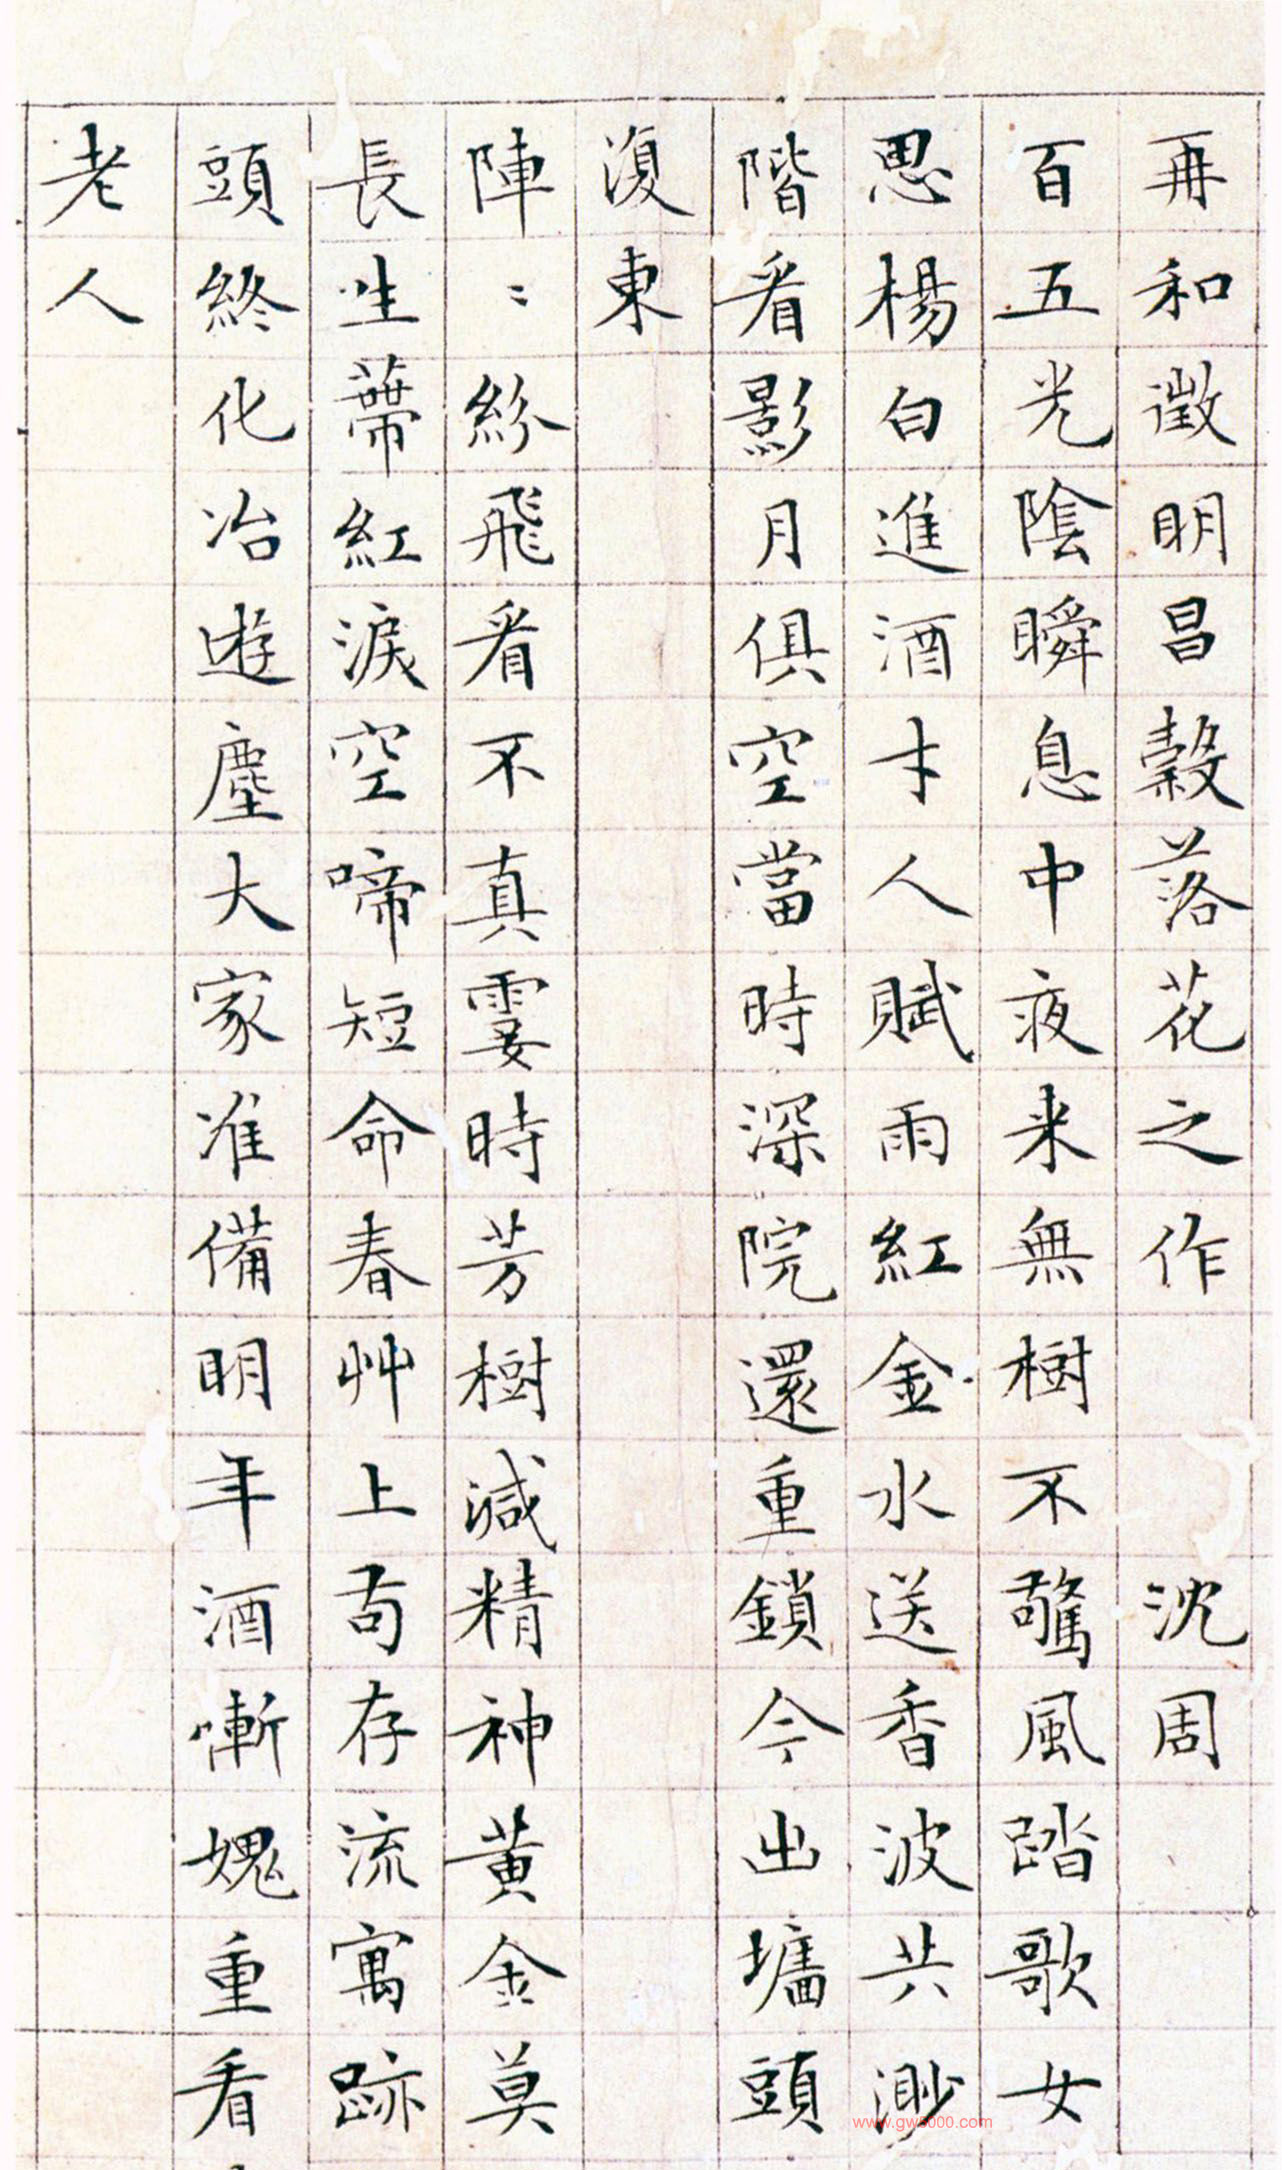 再和徵明昌穀落花之作沈周
百五光陰瞬息中夜来無樹不驚風踏歌女
思楊白進酒才人賦雨紅金水送香波共渺
階看影月俱空當時深院還重鎖今出墻頭
復東
陣〻紛飛看不真霎時芳樹減精神黃金莫
長生蔕紅淚空啼短命春艸上苟存流寓跡
頭終化冶遊塵大家准備明年酒慚媿重看
老人
www.gw8000.com